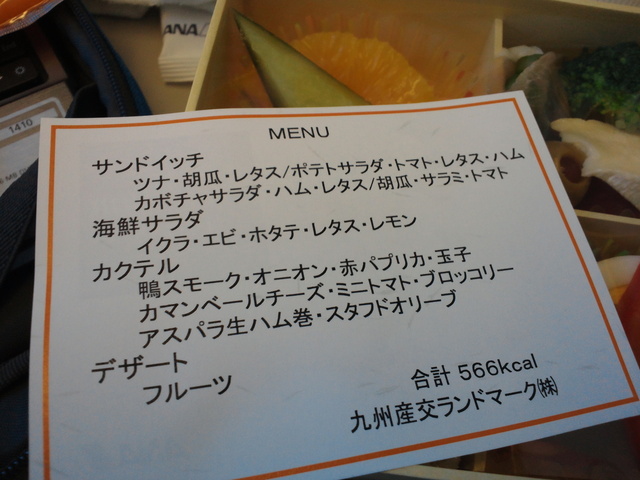 ANA
1410
MENU
サンドイッチ
ツナ・胡瓜・レタス/ポテトサラダ・トマト・レタス・ハム
カボチャサラダ・ハム・レタス/胡瓜・サラミ・トマト
海鮮サラダ
イクラ・エビ・ホタテ・レタス・レモン
カクテル
鴨スモーク・オニオン・赤パプリカ・玉子
カマンベールチーズ・ミニトマト・ブロッコリー
アスパラ生ハム巻・スタフドオリーブ
デザート
フルーツ
合計 566kcal
九州産交ランドマーク㈱